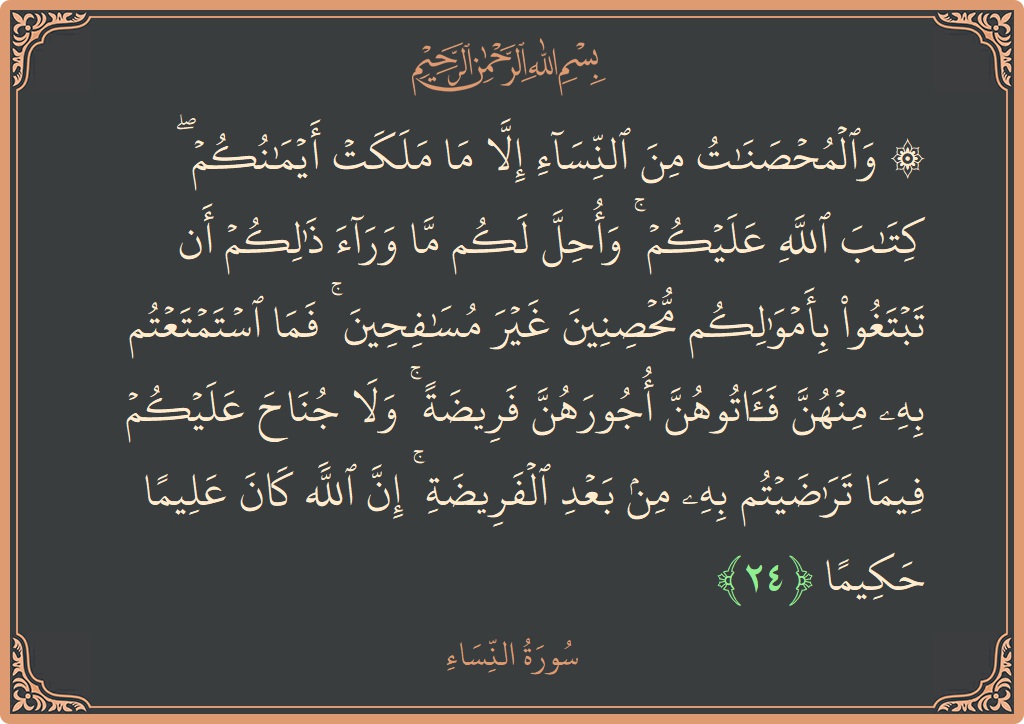 بِسْمِ اللَّهِ الرَّحْمَٰنِ الرَّحِيمِ
۞ وَٱلْمُحْصَنَـٰتُ مِنَ ٱلنِّسَآءِ إِلَّا مَا مَلَكَتْ أَيْمَـٰنُكُمْ ۖ
كِتَـٰبَ ٱللَّهِ عَلَيْكُمْ ۚ وَأُحِلَّ لَكُم مَّا وَرَآءَ ذَٰلِكُمْ أَن
تَبْتَغُوا۟ بِأَمْوَٰلِكُم مُّحْصِنِينَ غَيْرَ مُسَـٰفِحِينَ ۚ فَمَا ٱسْتَمْتَعْتُم
بِهِۦ مِنْهُنَّ فَـَٔاتُوهُنَّ أُجُورَهُنَّ فَرِيضَةً ۚ وَلَا جُنَاحَ عَلَيْكُمْ
فِيمَا تَرَٰضَيْتُم بِهِۦ مِنۢ بَعْدِ ٱلْفَرِيضَةِ ۚ إِنَّ ٱللَّهَ كَانَ عَلِيمًا
حَكِيمًا ﴿٢٤﴾
سُورَةُ النِّسَاءِ